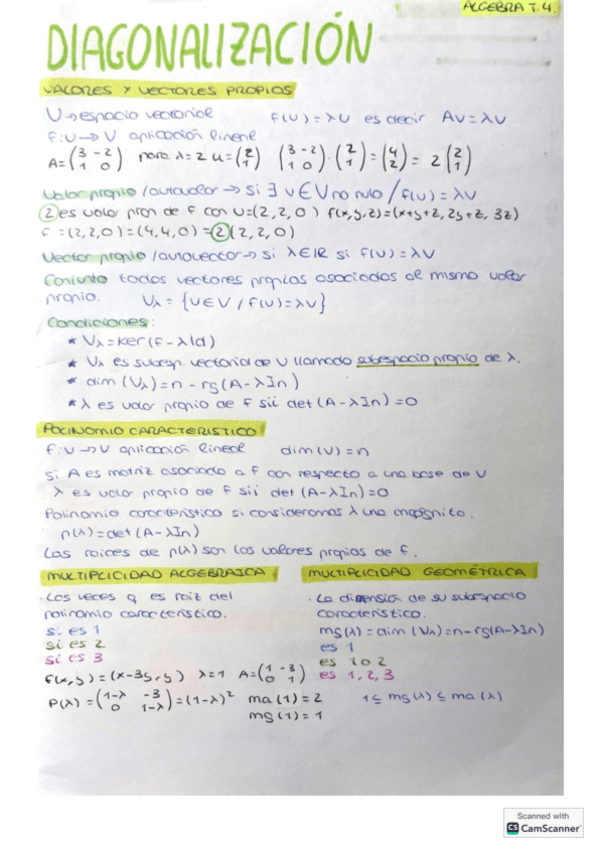 ALGEBRA T.4.
DIAGONALIZACIÓN
VALORES Y VECTORES PROPIOS
U→espacio vectorial f(U)=λU es decir AU=λU
f:U→V aplicación lineal
A=(3 -2 / 1 0) para λ=2 u=(2 / 1) (3 -2 / 1 0)·(2 / 1)=(4 / 2)= 2(2 / 1)
Valor propio/autovalor→ Si ∃ U∈V no nulo / f(U)=λU
2 es valor prop de f con U=(2,2,0) f(x,y,z)=(x+y+z, 2y+z, 3z)
f=(2,2,0)=(4,4,0)=2(2,2,0)
Vector propio/autovector→ si λ∈IR si f(U)=λU
Conjunto todos vectores propios asociados al mismo valor
propio. Vλ = {U∈V / f(U)=λU}
Condiciones:
* Vλ=ker(f-λId)
* Vλ es subesp. vectorial de V llamado subespacio propio de λ.
* dim(Vλ)=n-rg(A-λIn)
* λ es valor propio de f sii det(A-λIn)=0
POLINOMIO CARACTERISTICO
f:U→V aplicación lineal dim(V)=n
Si A es matriz asociada a f con respecto a una base de V
λ es valor propio de f sii det(A-λIn)=0
Polinomio característico si consideramos λ una incógnita.
p(λ)=det(A-λIn)
Las raíces de p(λ) son los valores propios de f.
MULTIPLICIDAD ALGEBRAICA
· Las veces q es raíz del
polinomio característico.
si es 1
si es 2
si es 3
f(x,y)=(x-3y,y) λ=1 A=(1 -3 / 0 1)
P(λ)=(1-λ -3 / 0 1-λ)=(1-λ)² ma(1)=2
mg(1)=1
MULTIPLICIDAD GEOMÉTRICA
· La dimensión de su subespacio
característico.
mg(λ)=dim(Vλ)=n-rg(A-λIn)
es 1
es 1 o 2
es 1, 2, 3
1≤mg(λ)≤ma(λ)
Scanned with
CS CamScanner